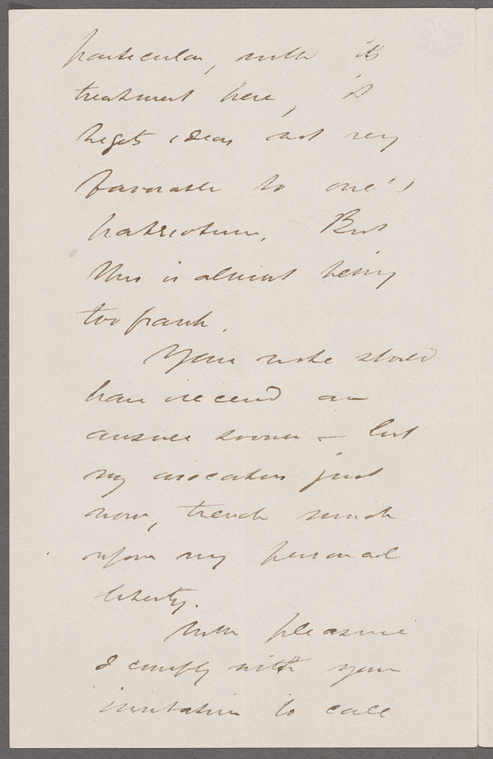 particular, with its
treatment here, it
begets ideas not very
favorable to one's
patriotism. But
this is almost being
too frank.
Your note should
have received an
answer sooner — but
my avocations just
now, trench much
upon my personal
liberty.
With pleasure
I comply with your
invitation to call